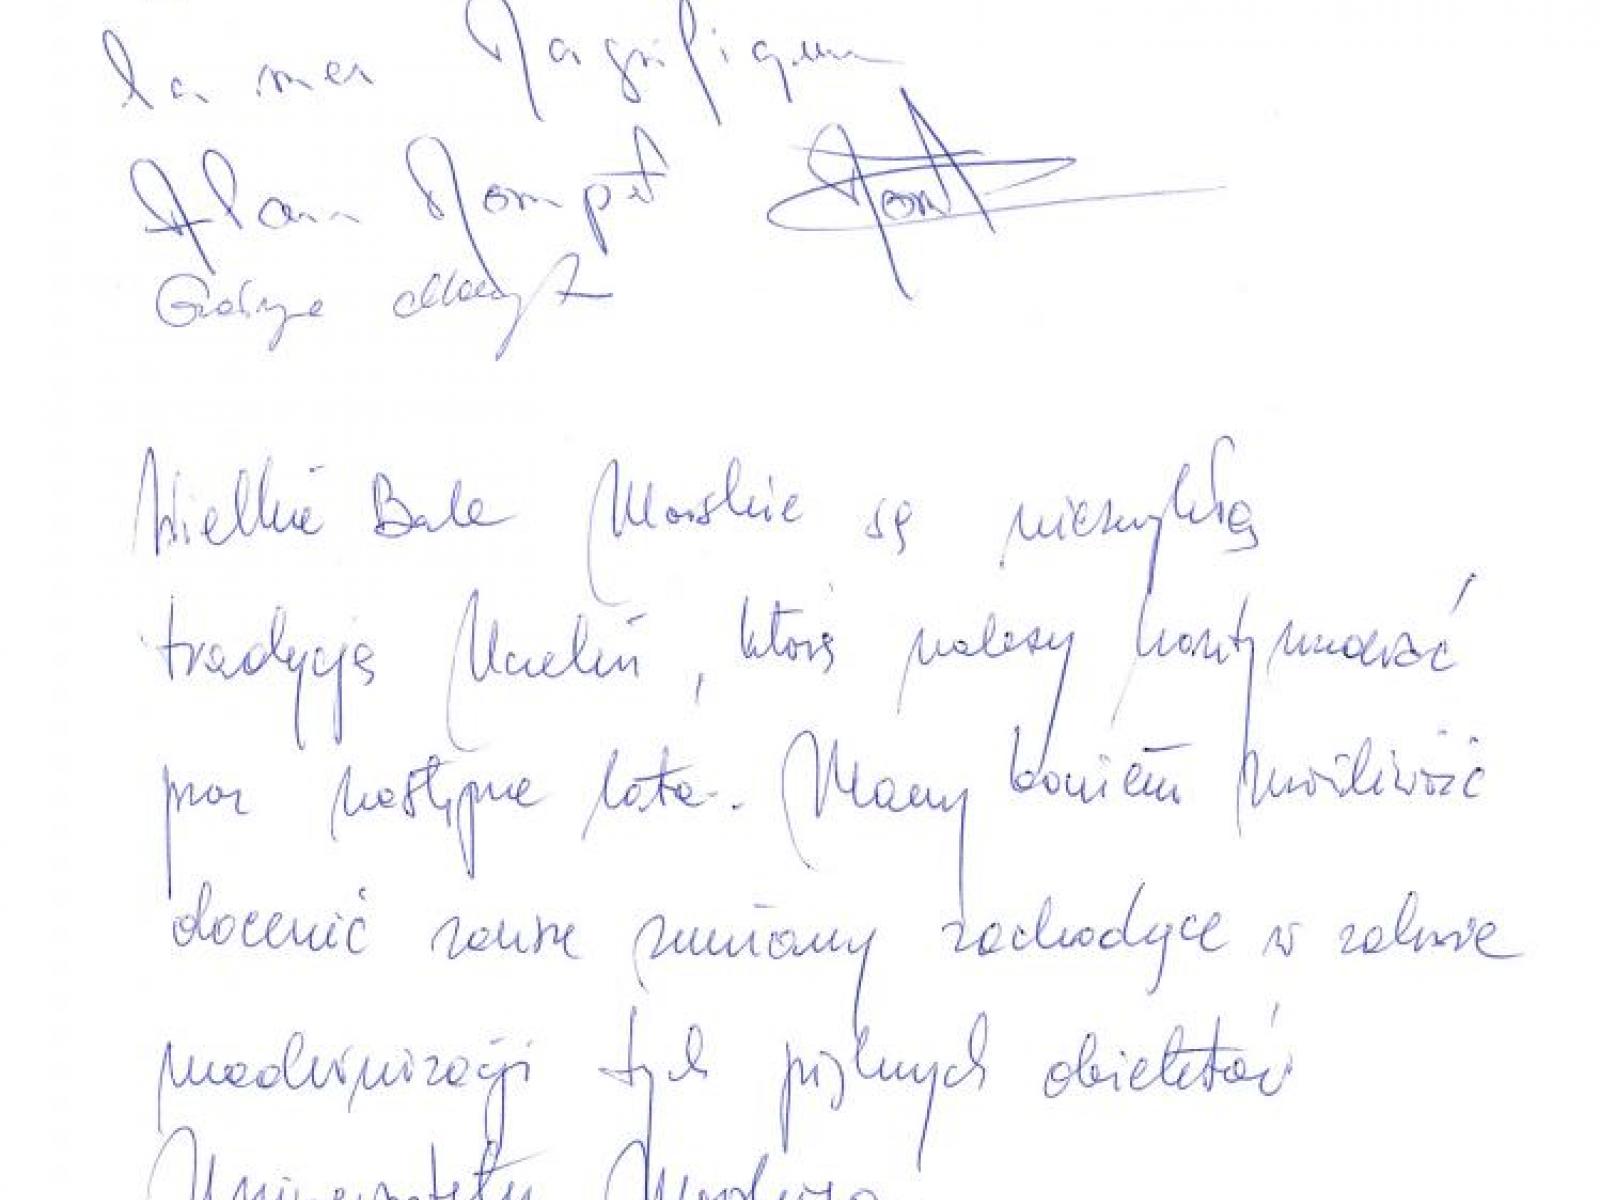 la mer Magnifique
Alain Mompat
Wielkie Bale Morskie są niezwykłą
tradycją Uczelni, którą należy kontynuować
przez następne lata. Mamy bowiem możliwość
docenić zawsze zmiany zachodzące w zakresie
modernizacji tych pięknych obiektów
Uniwersytetu Morskiego